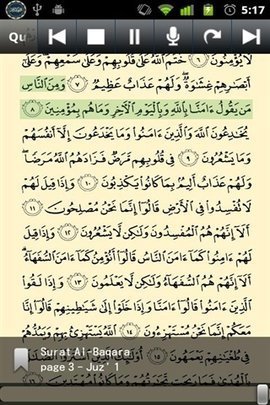 5:17
Qu
لَا يُؤْمِنُونَ ٦ خَتَمَ ٱللَّهُ عَلَىٰ قُلُوبِهِمْ وَعَلَىٰ سَمْعِهِمْ وَعَلَىٰٓ
أَبْصَٰرِهِمْ غِشَٰوَةٌ وَلَهُمْ عَذَابٌ عَظِيمٌ ٧ وَمِنَ ٱلنَّاسِ
مَن يَقُولُ ءَامَنَّا بِٱللَّهِ وَبِٱلْيَوْمِ ٱلْءَاخِرِ وَمَا هُم بِمُؤْمِنِينَ ٨
يُخَٰدِعُونَ ٱللَّهَ وَٱلَّذِينَ ءَامَنُوا۟ وَمَا يَخْدَعُونَ إِلَّآ أَنفُسَهُمْ
وَمَا يَشْعُرُونَ ٩ فِى قُلُوبِهِم مَّرَضٌ فَزَادَهُمُ ٱللَّهُ مَرَضًا
وَلَهُمْ عَذَابٌ أَلِيمٌۢ بِمَا كَانُوا۟ يَكْذِبُونَ ١٠ وَإِذَا قِيلَ لَهُمْ
لَا تُفْسِدُوا۟ فِى ٱلْأَرْضِ قَالُوٓا۟ إِنَّمَا نَحْنُ مُصْلِحُونَ ١١
أَلَآ إِنَّهُمْ هُمُ ٱلْمُفْسِدُونَ وَلَٰكِن لَّا يَشْعُرُونَ ١٢ وَإِذَا قِيلَ
لَهُمْ ءَامِنُوا۟ كَمَآ ءَامَنَ ٱلنَّاسُ قَالُوٓا۟ أَنُؤْمِنُ كَمَآ ءَامَنَ ٱلسُّفَهَآءُ
أَلَآ إِنَّهُمْ هُمُ ٱلسُّفَهَآءُ وَلَٰكِن لَّا يَعْلَمُونَ ١٣ وَإِذَا لَقُوا۟
ٱلَّذِينَ ءَامَنُوا۟ قَالُوٓا۟ ءَامَنَّا وَإِذَا خَلَوْا۟ إِلَىٰ شَيَٰطِينِهِمْ قَالُوٓا۟ إِنَّا
مَعَكُمْ إِنَّمَا نَحْنُ مُسْتَهْزِءُونَ ١٤ ٱللَّهُ يَسْتَهْزِئُ بِهِمْ وَيَمُدُّهُمْ
فِى طُغْيَٰنِهِمْ يَعْمَهُونَ ١٥
Surat Al-Baqara
page 3 - Juz' 1